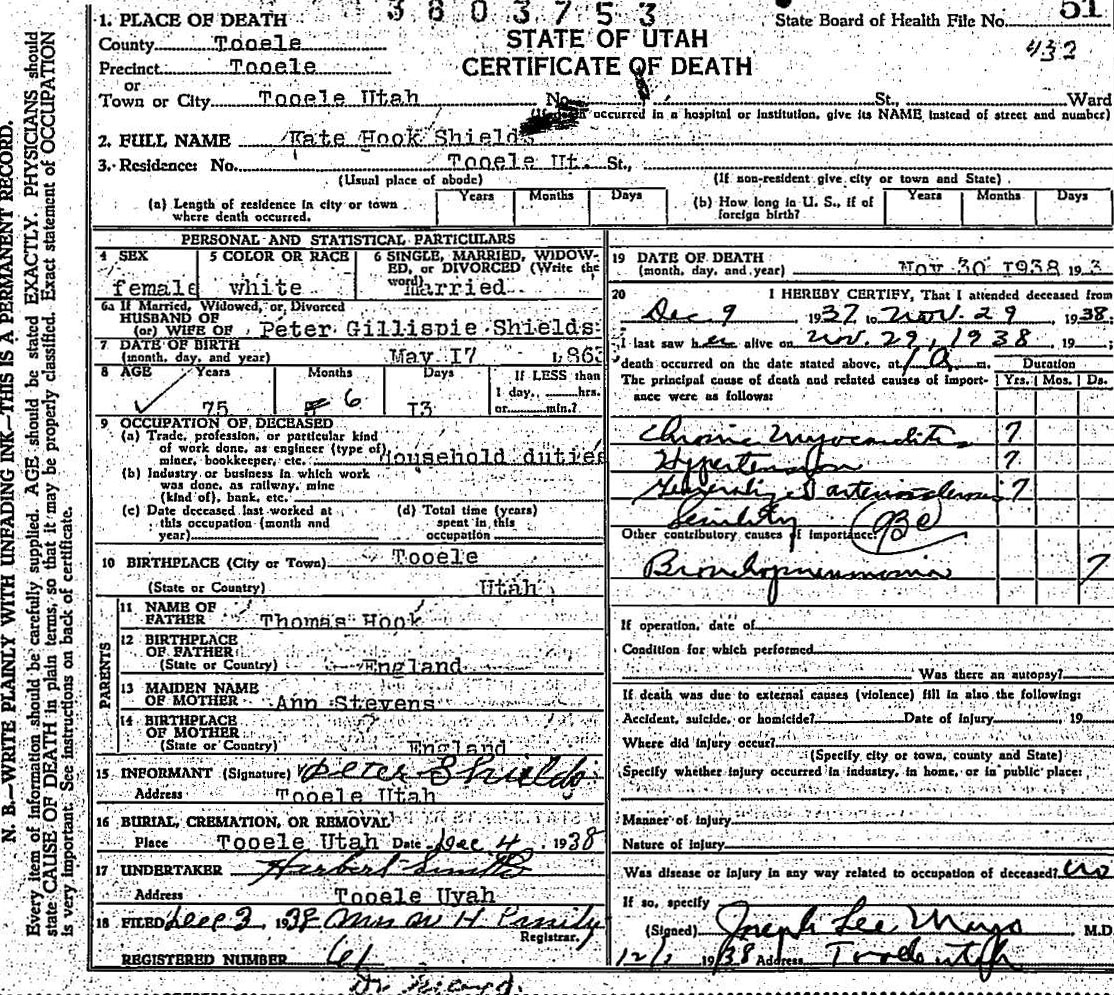 3 8 0 3 7 5 3
1. PLACE OF DEATH
State Board of Health File No. 51
County Tooele
STATE OF UTAH
432
Precinct Tooele
CERTIFICATE OF DEATH
or
Town or City Tooele Utah No. St., Ward
(If death occurred in a hospital or institution, give its NAME instead of street and number)
2. FULL NAME Kate Hook Shields
3. Residence: No. Tooele Ut. St.,
(Usual place of abode) (If non-resident give city or town and State)
(a) Length of residence in city or town where death occurred. Years Months Days
(b) How long in U. S., if of foreign birth? Years Months Days
PERSONAL AND STATISTICAL PARTICULARS
4 SEX female
5 COLOR OR RACE white
6 SINGLE, MARRIED, WIDOWED, or DIVORCED (Write the word) Married
6a If Married, Widowed, or Divorced
HUSBAND OF
(or) WIFE OF Peter Gillispie Shields
7 DATE OF BIRTH
(month, day, and year) May I7 1863
8 AGE Years Months Days If LESS than
1 day, hrs.
or min.?
75 6 I3
9 OCCUPATION OF DECEASED
(a) Trade, profession, or particular kind
of work done, as engineer (type of)
miner, bookkeeper, etc. Household duties
(b) Industry or business in which work
was done, as railway, mine
(kind of), bank, etc.
(c) Date deceased last worked at
this occupation (month and
year)
(d) Total time (years)
spent in this
occupation
10 BIRTHPLACE (City or Town) Tooele
(State or Country) Utah
PARENTS
11 NAME OF
FATHER Thomas Hook
12 BIRTHPLACE
OF FATHER
(State or Country) England
13 MAIDEN NAME
OF MOTHER Ann Stevens
14 BIRTHPLACE
OF MOTHER
(State or Country) England
15 INFORMANT (Signature) Peter Shields
Address Tooele Utah
16 BURIAL, CREMATION, OR REMOVAL
Place Tooele Utah Date Dec 4 1938
17 UNDERTAKER Herbert Smith
Address Tooele Uyah
18 FILED Dec 3 1938 Mrs W H
Registrar.
REGISTERED NUMBER 61
Dr.
19 DATE OF DEATH
(month, day, and year) Nov 30 I938 19 3
20 I HEREBY CERTIFY, That I attended deceased from
Dec 9 1937 to Nov. 29 1938.
I last saw her alive on Nov. 29, 1938, 19 ;
death occurred on the date stated above, at 1 a m.
Duration
The principal cause of death and related causes of importance were as follows:
Yrs. Mos. Ds.
Chronic Myocarditis 7
Hypertension 7
Generalized arteriosclerosis 7
Senility
Other contributory causes of importance:
Bronchopneumonia 7
If operation, date of
Condition for which performed
Was there an autopsy?
If death was due to external causes (violence) fill in also the following:
Accident, suicide, or homicide? Date of injury , 19
Where did injury occur?
(Specify city or town, county and State)
Specify whether injury occurred in industry, in home, or in public place:
Manner of injury
Nature of injury
Was disease or injury in any way related to occupation of deceased? no
If so, specify
(Signed) Joseph Lee Mayo M.D.
12/1 1938 Address Tooele Utah
N. B.—WRITE PLAINLY WITH UNFADING INK—THIS IS A PERMANENT RECORD.
Every item of information should be carefully supplied. AGE should be stated EXACTLY. PHYSICIANS should
state CAUSE OF DEATH in plain terms, so that it may be properly classified. Exact statement of OCCUPATION
is very important. See instructions on back of certificate.